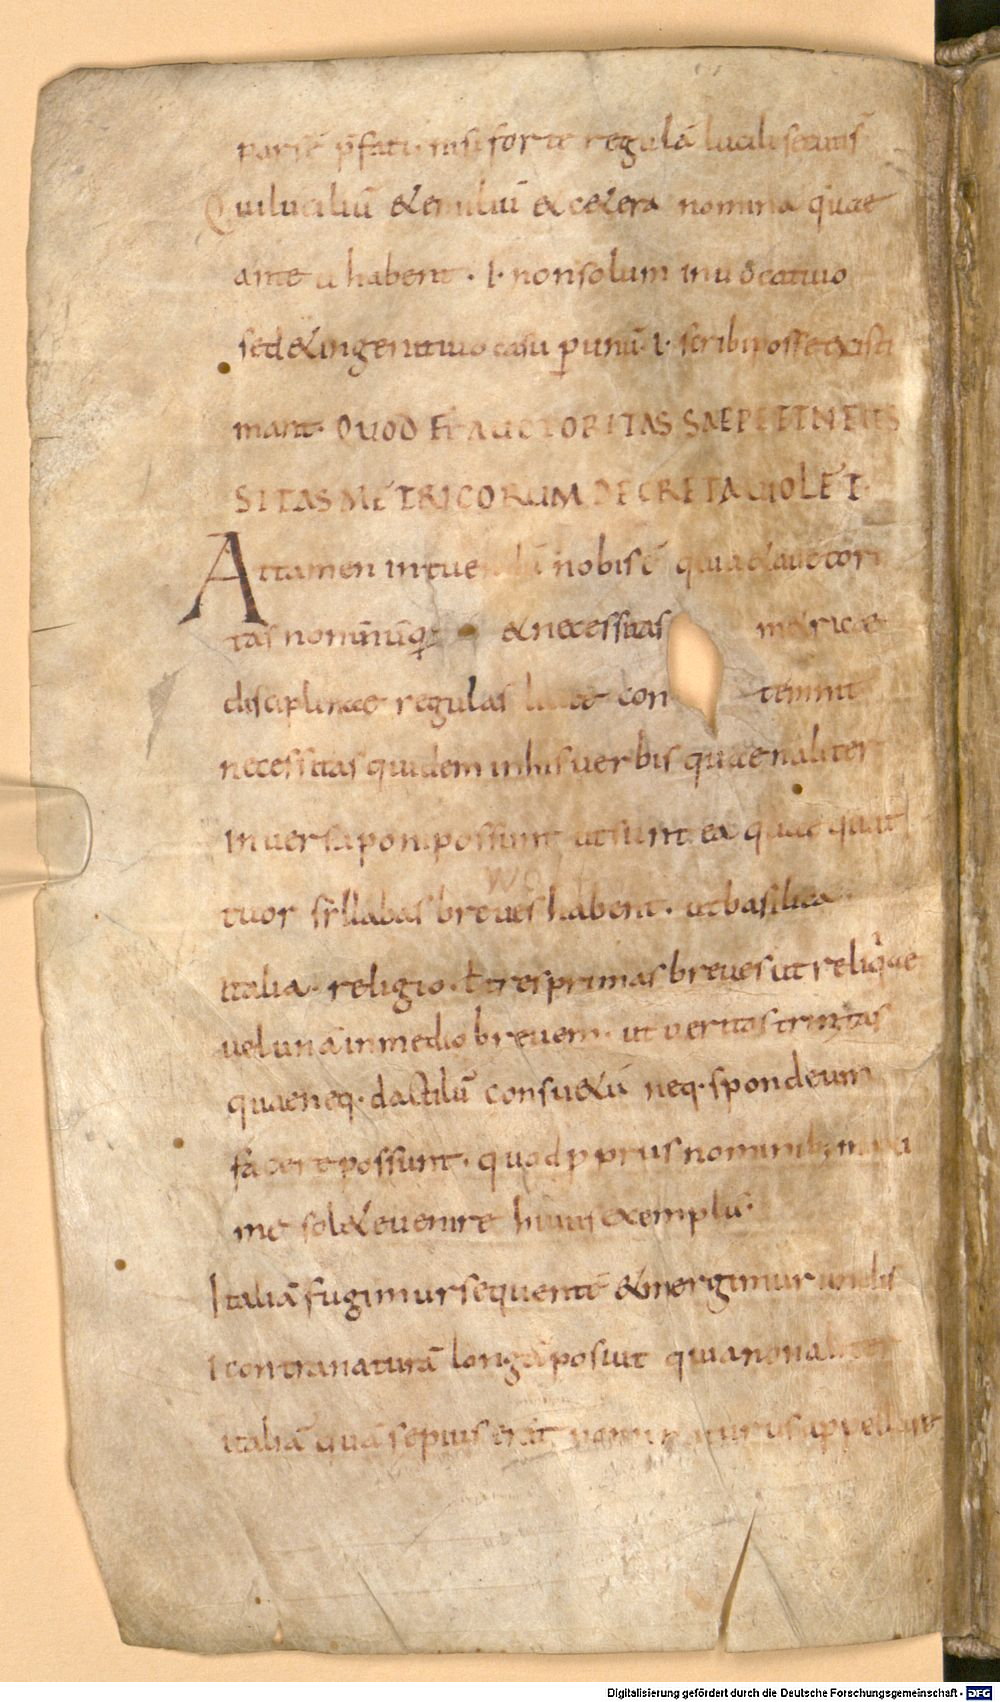 pars ē p̄fati · nisi forte regulā lucili secutus
Qui luciliū & emiliū & cetera nomina quae
ante u habent · I · non solum in uocatiuo
sed & in genitiuo casu p unū · I · scribi posse existi
mant · QUOD ET AUCTORITAS SAEPE ET NECES
SITAS METRICORUM DECRETA UIOLET ·
Attamen intuendū nobis ē quia & auctori
tas nonnūq & necessitas metricae
disciplinae regulas licite con temnit
necessitas quidem in his uerbis quae n aliter
in uersu poni possunt ut sunt ea quae quat
tuor sillabas breues habent · ut basilica ·
italia · religio · ł tres primas breues ut reliquiae
uel unā in medio brevem · ut ueritas trinitas
quae neq · dactilū consu&ū neq · spondeum
facere possunt · quod p prius nominib; maxi
me sol& euenire huius exempli ·
Italiā fugimur sequentē & mergimur undis
I contra naturā longā posuit quia non aliter
italiā quā sepius erat nominaturus appellare
Digitalisierung gefördert durch die Deutsche Forschungsgemeinschaft - DFG